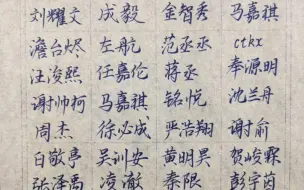 刘耀文 成毅 金智秀 马嘉祺
澹台烬 左航 范丞丞 ctkx
汪浚熙 任嘉伦 蒋丞 李源明
谢帅柯 马嘉祺 铭悦 沈兰丹
周杰 徐必成 严浩翔 谢俞
白敬亭 吴训安 黄明昊 贺峻霖
张泽禹 凌澈 秦陨 彭宇茵